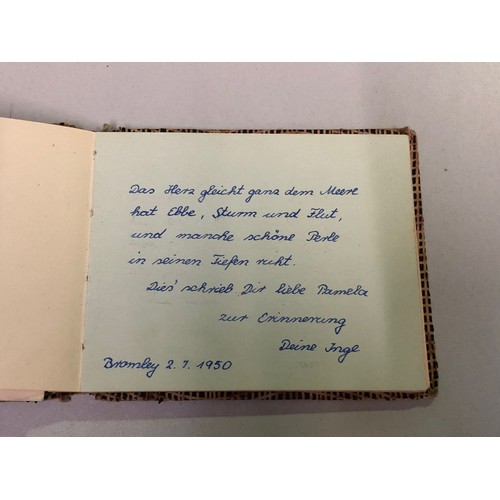 Das Herz gleicht ganz dem Meere
hat Ebbe, Sturm und Flut,
und manche schöne Perle
in seinen Tiefen ruht.
Dies' schrieb Dir liebe Pamela
zur Erinnerung
Deine Inge
Bromley 2.7.1950